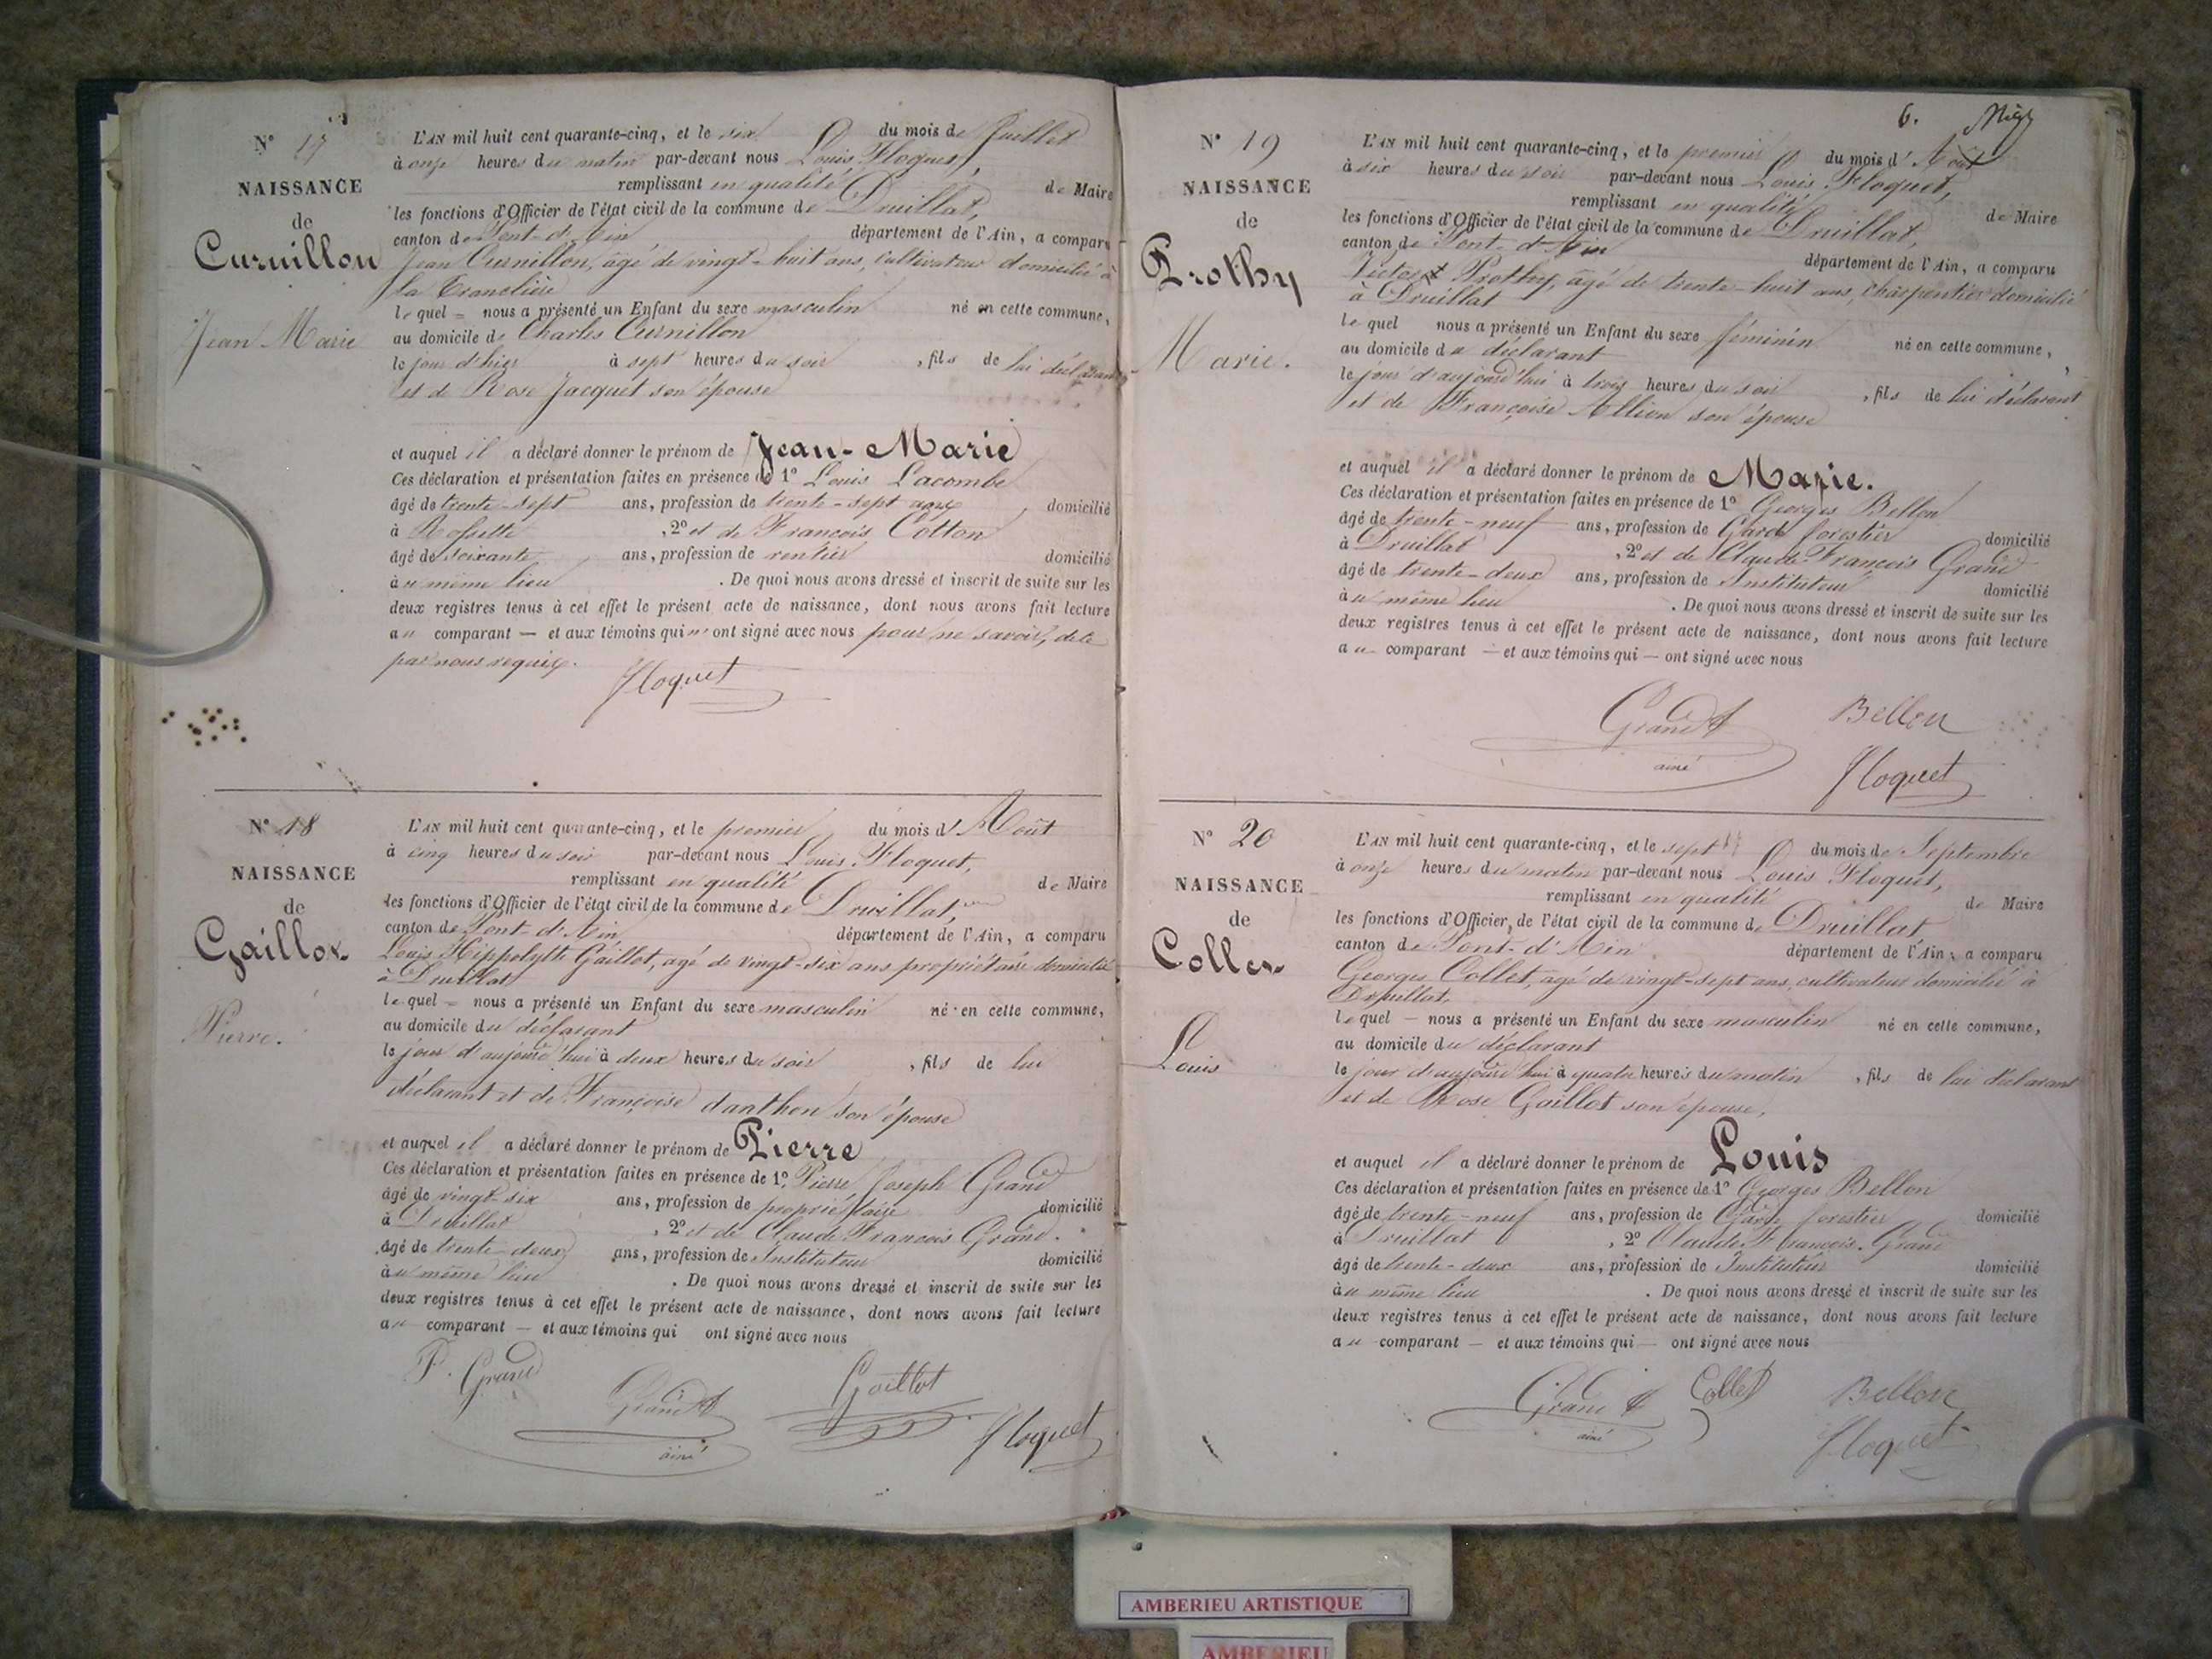 N° 17
NAISSANCE
de
Curnillon
Jean Marie
L'AN mil huit cent quarante-cinq, et le six du mois de Juillet
à onze heures du matin par-devant nous Louis Floquet,
remplissant en qualité de Maire
les fonctions d'Officier de l'état civil de la commune de Druillat,
canton de Pont-d'Ain département de l'Ain, a comparu
Jean Curnillon, agé de vingt-huit ans, cultivateur domicilié à
la Tranclière
le quel = nous a présenté un Enfant du sexe masculin né en cette commune,
au domicile de Charles Curnillon
le jour d'hier à sept heures du soir, fils de lui déclarant
et de Rose Jacquet son épouse
et auquel il a déclaré donner le prénom de Jean-Marie
Ces déclaration et présentation faites en présence de 1° Louis Lacombe
âgé de trente-sept ans, profession de trente-sept ans, domicilié
à Rossette, 2° et de François Cotton
âgé de soixante ans, profession de rentier domicilié
à u même lieu. De quoi nous avons dressé et inscrit de suite sur les
deux registres tenus à cet effet le présent acte de naissance, dont nous avons fait lecture
a u comparant — et aux témoins qui n' ont signé avec nous pour ne savoir, de ce
par nous requis.
Floquet
N° 18
NAISSANCE
de
Gaillot
Pierre.
L'AN mil huit cent quarante-cinq, et le premier du mois d' Août
à cinq heures du soir par-devant nous Louis Floquet,
remplissant en qualité de Maire
les fonctions d'Officier de l'état civil de la commune de Druillat,
canton de Pont-d'Ain département de l'Ain, a comparu
Louis Hippolytte Gaillot, agé de vingt-six ans propriétaire domicilié
à Druillat
le quel = nous a présenté un Enfant du sexe masculin né en cette commune,
au domicile du déclarant
le jour d'aujourd'hui à deux heures du soir, fils de lui
déclarant et de Françoise danthon son épouse
et auquel il a déclaré donner le prénom de Pierre
Ces déclaration et présentation faites en présence de 1° Pierre Joseph Grand
âgé de vingt-six ans, profession de propriétaire domicilié
à Druillat, 2° et de Claude François Grand.
âgé de trente-deux ans, profession de Instituteur domicilié
à u même lieu. De quoi nous avons dressé et inscrit de suite sur les
deux registres tenus à cet effet le présent acte de naissance, dont nous avons fait lecture
a u comparant — et aux témoins qui ont signé avec nous
P. Grand
Grand
ainé
Gaillot
Floquet
6.
N° 19
NAISSANCE
de
Prothy
Marie.
L'AN mil huit cent quarante-cinq, et le premier du mois d' Août
à six heures du soir par-devant nous Louis Floquet,
remplissant en qualité de Maire
les fonctions d'Officier de l'état civil de la commune de Druillat,
canton de Pont-d'Ain département de l'Ain, a comparu
Victor Prothy, âgé de trente-huit ans, charpentier domicilié
à Druillat
le quel nous a présenté un Enfant du sexe féminin né en cette commune,
au domicile du déclarant
le jour d'aujourd'hui à trois heures du soir, fils de lui déclarant
et de Françoise Allion son épouse
et auquel il a déclaré donner le prénom de Marie.
Ces déclaration et présentation faites en présence de 1° Georges Bellon
âgé de trente-neuf ans, profession de Garde forestier domicilié
à Druillat, 2° et de Claude François Grand
âgé de trente-deux ans, profession de Instituteur domicilié
à u même lieu. De quoi nous avons dressé et inscrit de suite sur les
deux registres tenus à cet effet le présent acte de naissance, dont nous avons fait lecture
a u comparant — et aux témoins qui — ont signé avec nous
Grand
ainé
Bellon
Floquet
N° 20
NAISSANCE
de
Collet
Louis
L'AN mil huit cent quarante-cinq, et le sept du mois de Septembre
à onze heures du matin par-devant nous Louis Floquet,
remplissant en qualité de Maire
les fonctions d'Officier, de l'état civil de la commune de Druillat
canton de Pont-d'Ain département de l'Ain, a comparu
Georges Collet, agé de vingt-sept ans, cultivateur domicilié à
Druillat,
le quel — nous a présenté un Enfant du sexe masculin né en cette commune,
au domicile du déclarant
le jour d'aujourd'hui à quatre heures du matin, fils de lui déclarant
et de Rose Gaillot son épouse,
et auquel il a déclaré donner le prénom de Louis
Ces déclaration et présentation faites en présence de 1° Georges Bellon
âgé de trente-neuf ans, profession de Garde forestier domicilié
à Druillat, 2° Claude François Grand
âgé de trente-deux ans, profession de Instituteur domicilié
à u même lieu. De quoi nous avons dressé et inscrit de suite sur les
deux registres tenus à cet effet le présent acte de naissance, dont nous avons fait lecture
a u comparant — et aux témoins qui — ont signé avec nous
Grand
ainé
Collet
Bellon
Floquet
AMBERIEU ARTISTIQUE
AMBERIEU